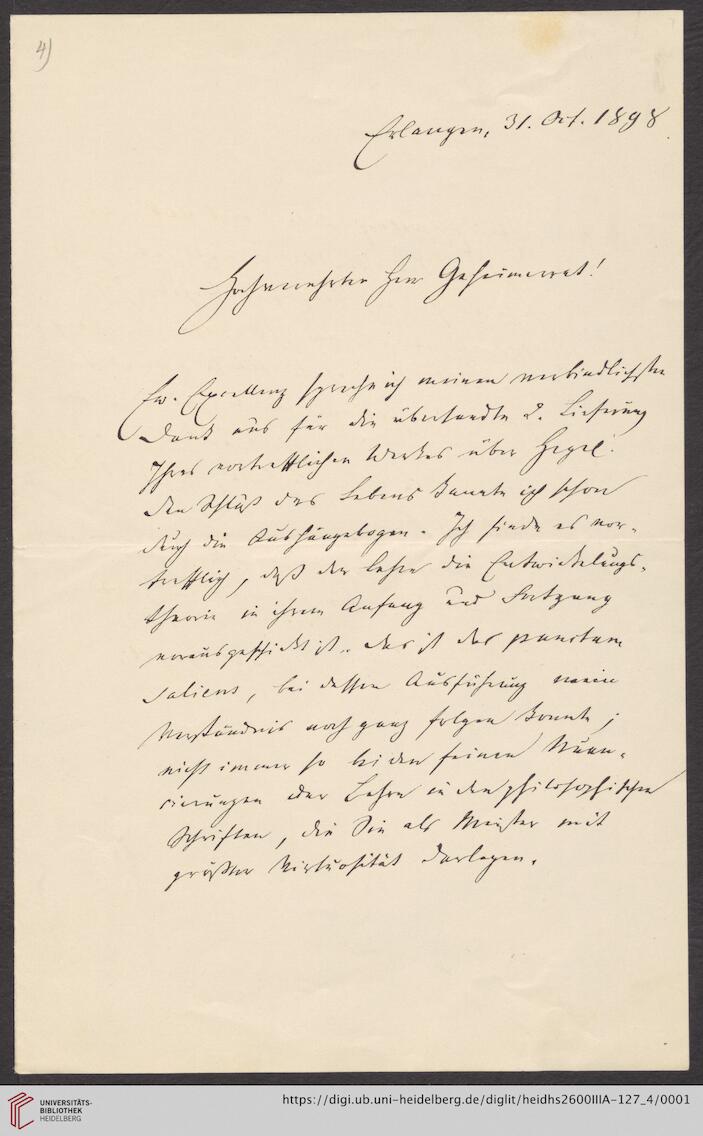 4)
Erlangen, 31. Oct. 1898
Hochverehrter Herr Geheimerat!
Ew. Excellenz spreche ich meinen verbindlichsten
Dank aus für die übersandte 2. Lieferung
Ihres vortrefflichen Werkes über Hegel.
Den Schluß des Lebens kannte ich schon
durch die Aushängebogen. Ich finde es vor-
trefflich, daß der Lehre die Entwickelungs-
theorie in ihrem Anfang und Fortgang
vorausgeschickt ist. das ist das punctum
saliens, bei dessen Ausführung mein
Verständnis noch ganz folgen konnte;
nicht immer so bei den feinen Nüan-
cirungen der Lehre in den philosophischen
Schriften, die Sie als Meister mit
größter Virtuosität darlegen.
UNIVERSITÄTS-
BIBLIOTHEK
HEIDELBERG
https://digi.ub.uni-heidelberg.de/diglit/heidhs2600IIIA-127_4/0001